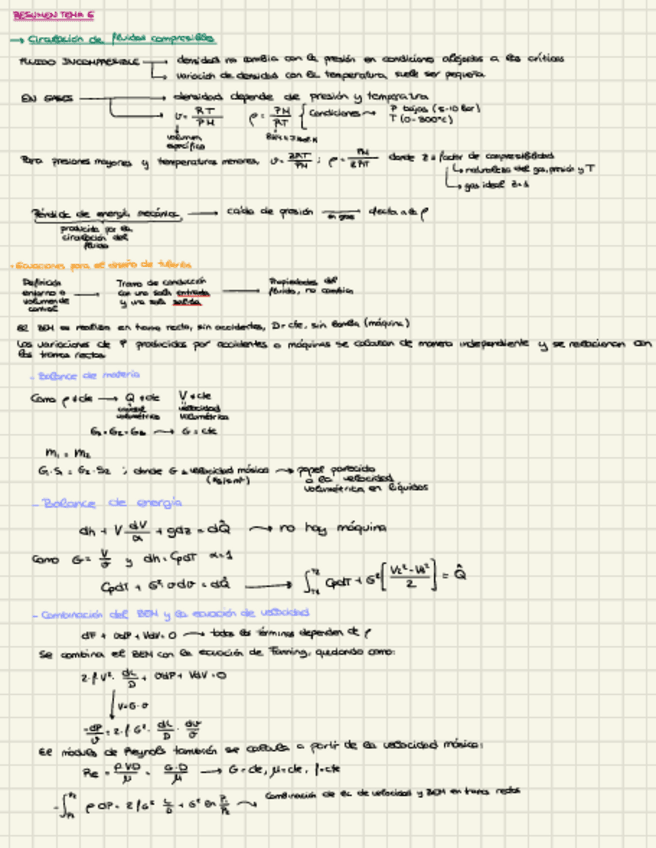 RESUMEN TEMA 6
→ Circulación de fluidos compresibles
FLUIDO INCOMPRESIBLE → densidad no cambia con la presión en condiciones alejadas a las críticas
→ variación de densidad con la temperatura, suele ser pequeña
EN GASES → densidad depende de presión y temperatura
→ v = RT/PM ρ = PM/RT { Condiciones → P bajas (5-10 bar)
T (0-300ºC)
volumen específico
Para presiones mayores y temperaturas menores, v = ZRT/PM ; ρ = PM/ZRT donde Z = factor de compresibilidad
↳ naturaleza del gas, presión y T
↳ gas ideal Z=1
Pérdida de energía mecánica, → caída de presión en gas → afecta a la ρ
producida por la
circulación del
fluido
- Ecuaciones para el diseño de tuberías
Definición
entorno o
volumen de
control
→ Tramo de conducción
con una sola entrada
y una sola salida
→ Propiedades del
fluido, no cambia
El BEM se realiza en tramo recto, sin accidentes, D=cte, sin bomba (máquina)
Las variaciones de P producidas por accidentes o máquinas se calculan de manera independiente y se relacionan con
los tramos rectos
- Balance de materia
Como ρ≠cte → Q≠cte V≠cte
caudal volumétrico velocidad volumétrica
G₁=G₂=G₃ → G=cte
m₁ = m₂
G₁·S₁ = G₂·S₂ ; donde G = velocidad másica → papel parecido
a la velocidad
volumétrica en líquidos
- Balance de energía
dh + V dV/α + gdz = dQ̂ → no hay máquina
Como G = V/v y dh = CpdT α=1
CpdT + G² v dv = dQ̂ → ∫ CpdT + G² [ (V₂²-V₁²)/2 ] = Q̂
- Combinación del BEM y la ecuación de velocidad
dF + vdP + VdV = 0 → todos los términos dependen de ρ
Se combina el BEM con la ecuación de Fanning, quedando como:
2·f·V²· dL/D + vdP + VdV = 0
V=G·v
-dP/v = 2·f·G²· dL/D · dv/v
El módulo de Reynols también se calcula a partir de la velocidad másica:
Re = ρVD/μ = G·D/μ → G=cte, μ=cte, f=cte
-∫ ρ dP = 2fG² L/D + G² ln → Combinación de ec de velocidad y BEM en tramos rectos